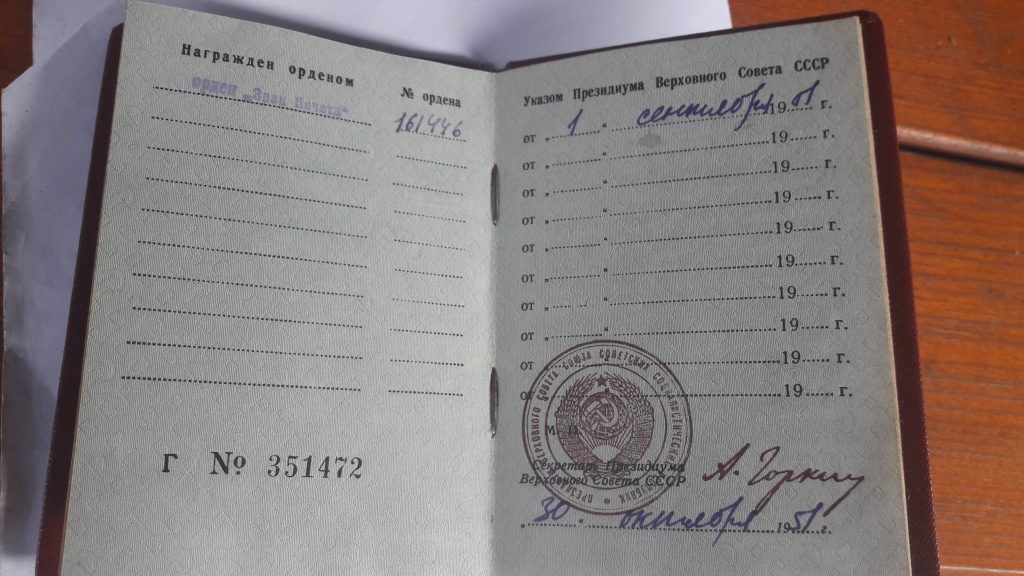 Награжден орденом
№ ордена
Орден „Знак Почета"
161446
Г № 351472
Указом Президиума Верховного Совета СССР
от „ 1 " сентября 1951 г.
от „ " 19 г.
от „ " 19 г.
от „ " 19 г.
от „ " 19 г.
от „ " 19 г.
от „ " 19 г.
от „ " 19 г.
от „ " 19 г.
от „ " 19 г.
М. П.
Секретарь Президиума
Верховного Совета СССР
А. Горкин
„ 30 " октября 1951 г.
ВЕРХОВНОГО СОВЕТА СОЮЗА СОВЕТСКИХ СОЦИАЛИСТИЧЕСКИХ